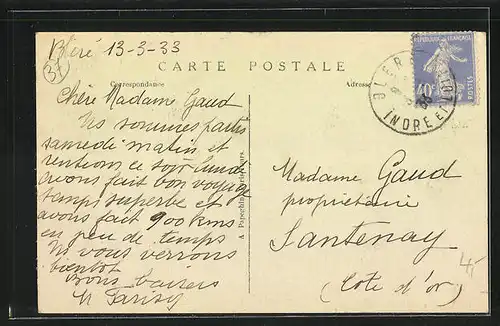 Bléré 13-3-33
37
CARTE POSTALE
Correspondance
Adresse
RÉPUBLIQUE FRANÇAISE
40F
POSTES
BLÉRÉ
INDRE ET
Chère Madame Gaud
Ns sommes partis
samedi matin et
rentrons ce soir lundi
avons fait bon voyage
temps superbe et
avons fait 900 kms
en peu de temps
Ns vous verrons
bientôt
Bons baisers
Madame Gaud
propriétaire
Santenay
(Cote d'or)